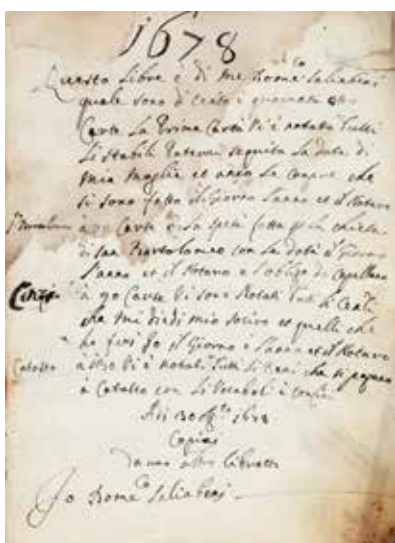 1678
Questo Libro è di me Dom.co Saliabeni
quale sono di Cento e quaranta otto
Carte La Prima Carta Vi è notato Tutti
Li Stabili Interni seguita La data di
mia moglie et anco Le Compre che
si sono fatte il Giorno L'anno et il Notaro
à Carte La spesa fatta chiesa
di san Bartolomeo con La data il Giorno
L'anno et il Notaro e l'obligo di Capellano
Censi à 90 Carte Vi sono Notati Tutti li Censi
che mi diedi mio socero et quelli che
ho fatti Io il Giorno e L'anno et il Notaro
Catasto à 130 Vi è notati Tutti Li Beni che si pagano
à Catasto con Li Vocaboli e confini
Adi 30 1678
Copiai
da un altro libretto
Io Dom.co Saliabeni